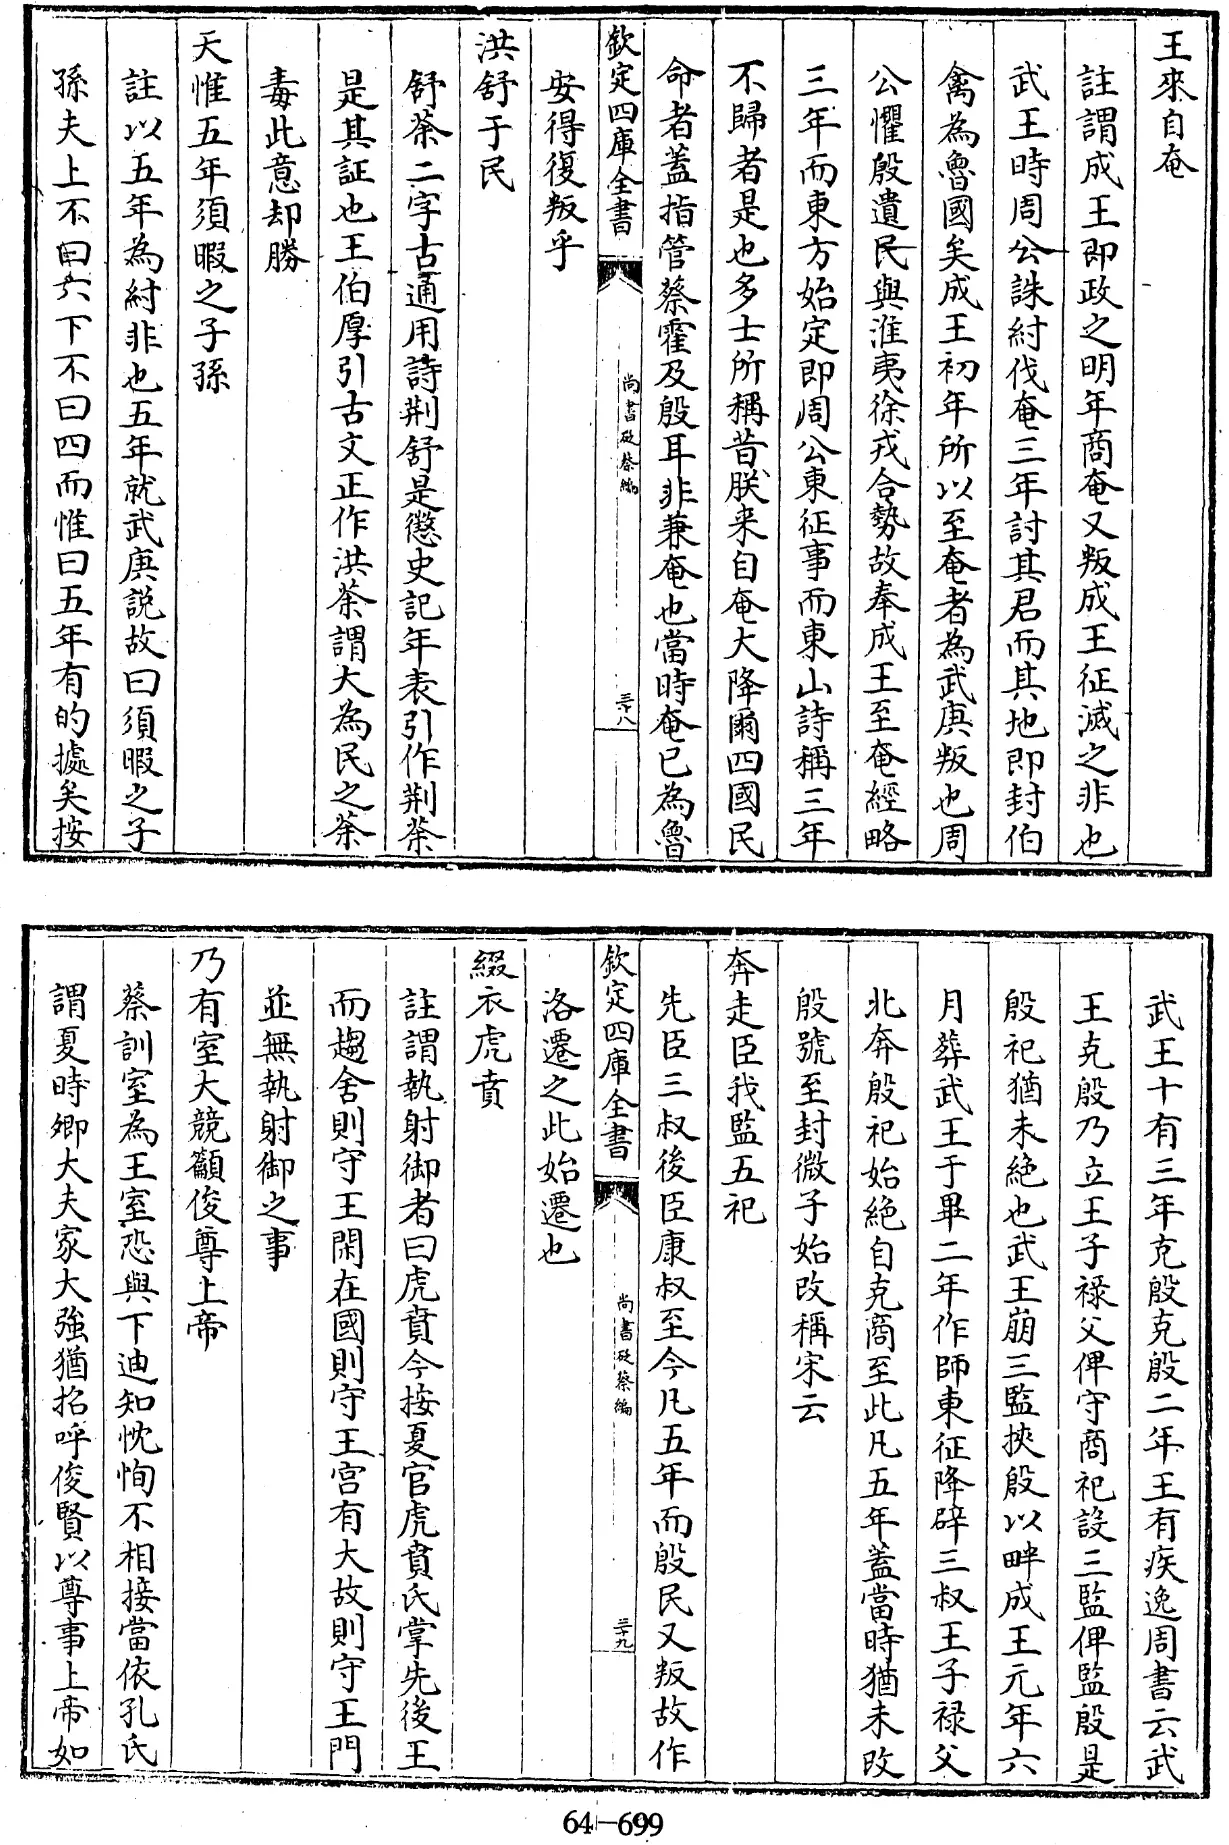 王來自奄
註謂成王即政之明年商奄又叛成王征滅之非也
武王時周公誅紂伐奄三年討其君而其地即封伯
禽為魯國矣成王初年所以至奄者為武庚叛也周
公懼殷遺民與淮夷徐戎合勢故奉成王至奄經略
三年而東方始定即周公東征事而東山詩稱三年
不歸者是也多士所稱昔朕来自奄大降爾四國民
命者蓋指管蔡霍及殷耳非兼奄也當時奄已為魯
欽定四庫全書
尚書砭蔡編
三十八
安得復叛乎
洪舒于民
舒荼二字古通用詩荆舒是懲史記年表引作荆荼
是其証也王伯厚引古文正作洪荼謂大為民之荼
毒此意却勝
天惟五年須暇之子孫
註以五年為紂非也五年就武庚説故曰須暇之子
孫夫上不曰六下不曰四而惟曰五年有的據矣按
武王十有三年克殷克殷二年王有疾逸周書云武
王克殷乃立王子祿父俾守商祀設三監俾監殷是
殷祀猶未絶也武王崩三監挾殷以畔成王元年六
月葬武王于畢二年作師東征降辟三叔王子祿父
北奔殷祀始絶自克商至此凡五年蓋當時猶未改
殷號至封微子始改稱宋云
奔走臣我監五祀
先臣三叔後臣康叔至今凡五年而殷民又叛故作
欽定四庫全書
尚書砭蔡編
三十九
洛遷之此始遷也
綴衣虎賁
註謂執射御者曰虎賁今按夏官虎賁氏掌先後王
而趨舍則守王閑在國則守王宫有大故則守王門
並無執射御之事
乃有室大競籲俊尊上帝
蔡訓室為王室恐與下迪知忱恂不相接當依孔氏
謂夏時卿大夫家大強猶招呼俊賢以尊事上帝如
64-699